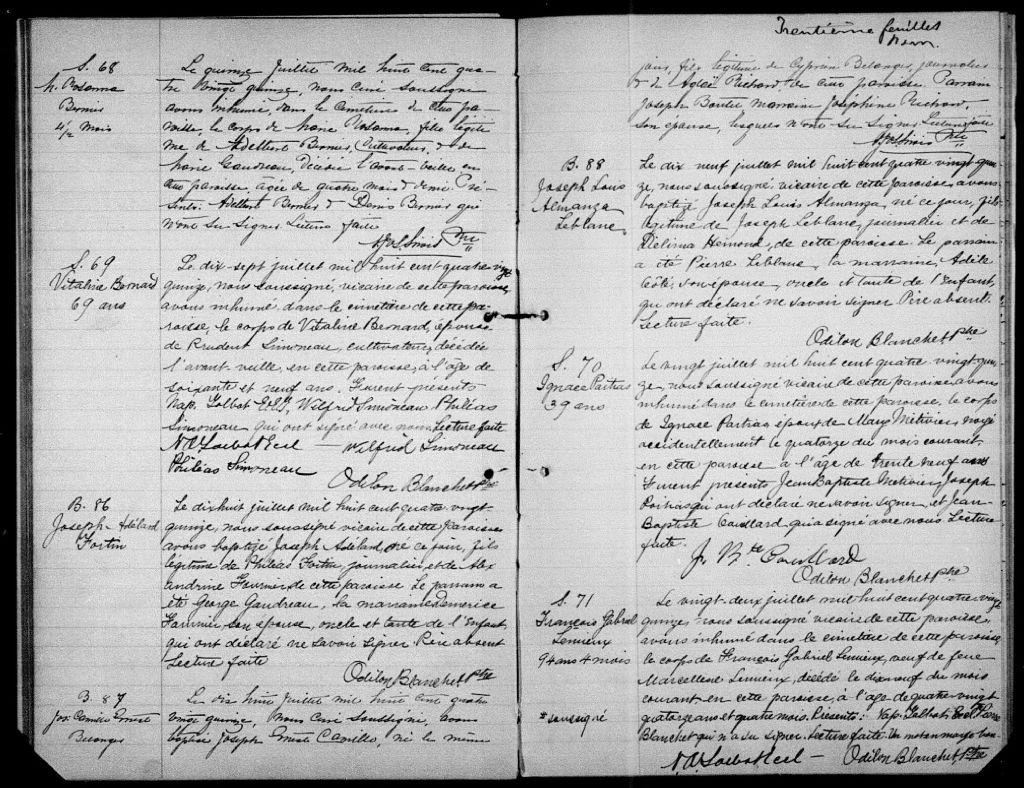 S. 68
M. Rosanna
Bernier
4½ mois
Le quinze juillet mil huit cent qua-
tre vingt quinze, nous curé soussigné
avons inhumé, dans le cimetière de cette pa-
roisse, le corps de Marie Rosanna, fille légiti
me de Adelbert Bernier, cultivateur, & de
Marie Gaudreau, décédée l'avant-veille en
cette paroisse, agée de quatre mois & demi. Pré-
sents: Adelbert Bernier & Denis Bernier qui
n'ont su signer. Lecture faite
Ptre
S. 69
Vitaline Bernard
69 ans
Le dix-sept juillet mil huit cent quatre vingt
quinze, nous soussigné, vicaire de cette paroisse,
avons inhumé dans le cimetière de cette pa-
roisse, le corps de Vitaline Bernard, épouse
de Prudent Simoneau, cultivateur, décédée
l'avant-veille, en cette paroisse, à l'âge de
soixante et neuf ans. Furent présents
Nap. Talbot Eccl, Wilfrid Simoneau Philéas
Simoneau qui ont signé avec nous. Lecture faite
N. A. Talbot Eccl — Wilfrid Simoneau
Philéas Simoneau
Odilon Blanchet Ptre
B. 86
Joseph-Adélard
Fortin
Le dixhuit juillet mil huit cent quatre vingt-
quinze, nous soussigné vicaire de cette paroisse
avons baptizé Joseph Adélard, né ce jour, fils
légitime de Philéas Fortin, journalier et de Alex
andrine Fournier, de cette paroisse. Le parrain a
été George Gaudreau, la marraine Démerice
Fournier son épouse, oncle et tante de l'Enfant
qui ont déclaré ne savoir signer. Père absent
Lecture faite
Odilon Blanchet Ptre
B. 87
Jos. Camille Ernest
Belanger
Le dix huit juillet mil huit cent quatre
vingt quinze, nous curé soussigné, avons
baptisé Joseph Ernest Camille, né le même
Trentième feuillet
jour, fils légitime de Cyprien Belanger, journalier
& de Agleé Richard, de cette paroisse. Parrain
Joseph marraine Joséphine Richard,
son épouse, lesquels n'ont su signer. Lecture faite
Ptre
B. 88
Joseph Louis
Almanza
Leblanc
Le dix neuf juillet mil huit cent quatre vingt-quin
ze, nous soussigné, vicaire de cette paroisse, avons
baptizé Joseph Louis Almanza, né ce jour, fils
légitime de Joseph Leblanc, journalier et de
Délima Hémond, de cette paroisse. Le parrain
a été Pierre Leblanc, la marraine, Adèle
Côté, son épouse, oncle et tante de l'Enfant,
qui ont déclaré ne savoir signer. Père absent.
Lecture faite.
Odilon Blanchet Ptre
S. 70
Ignace Poitras
39 ans
Le vingt juillet mil huit cent quatre vingt-quin
ze, nous soussigné vicaire de cette paroisse, avons
inhumé dans le cimetière de cette paroisse, le corps
de Ignace Poitras, époux de Mary Métivier, noyé
accidentellement le quatorze du mois courant
en cette paroisse à l'âge de trente neuf ans
Furent présents Jean Baptiste Métivier, Joseph
Poitras qui ont déclaré ne savoir signer et Jean
Baptiste Couillard qui a signé avec nous. Lecture
faite.
J. Bte Couillard
Odilon Blanchet Ptre
S. 71
François Gabriel
Lemieux
94 ans 4 mois
* soussigné
Le vingt-deux juillet mil huit cent quatre vingt
quinze nous soussigné vicaire de cette paroisse,
avons inhumé dans le cimetière de cette paroisse,
le corps de François Gabriel Lemieux, veuf de feue
Marcelline Lemieux, décédé le dixneuf du mois
courant en cette paroisse, à l'âge de quatre vingt
quatorze ans et quatre mois. Présents: Nap. Talbot Eccl
Blanchet qui n'a su signer. Lecture faite. Un mot en marge bon.
N. A. Talbot Eccl — Odilon Blanchet Ptre